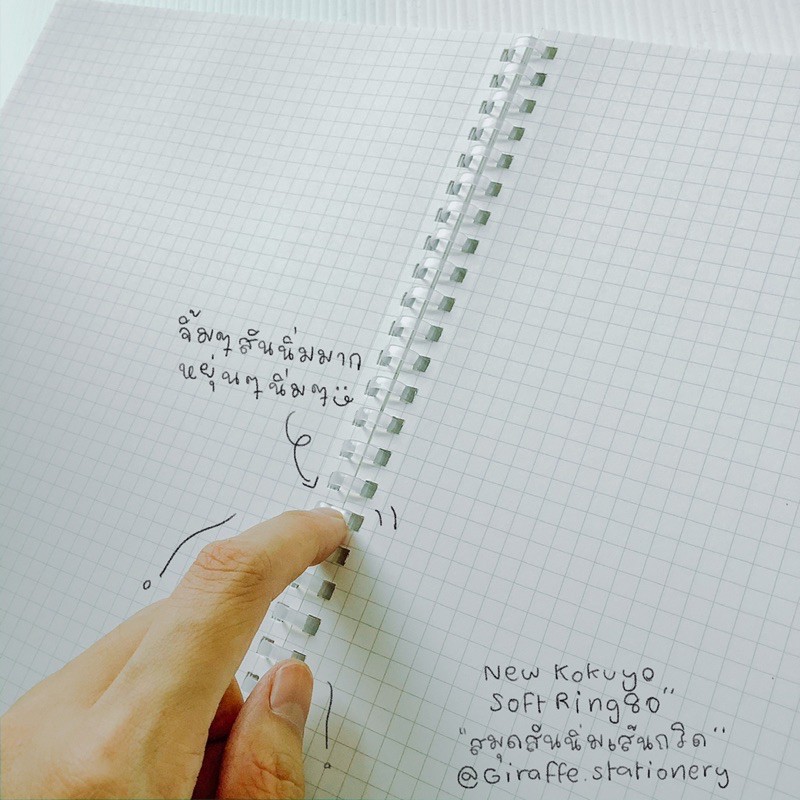 จิ้มๆสันนิ่มมาก
หยุ่นๆนิ่มๆ
New Kokuyo
Soft Ring80"
"สมุดสันนิ่มเส้นกริด"
@Giraffe.stationery